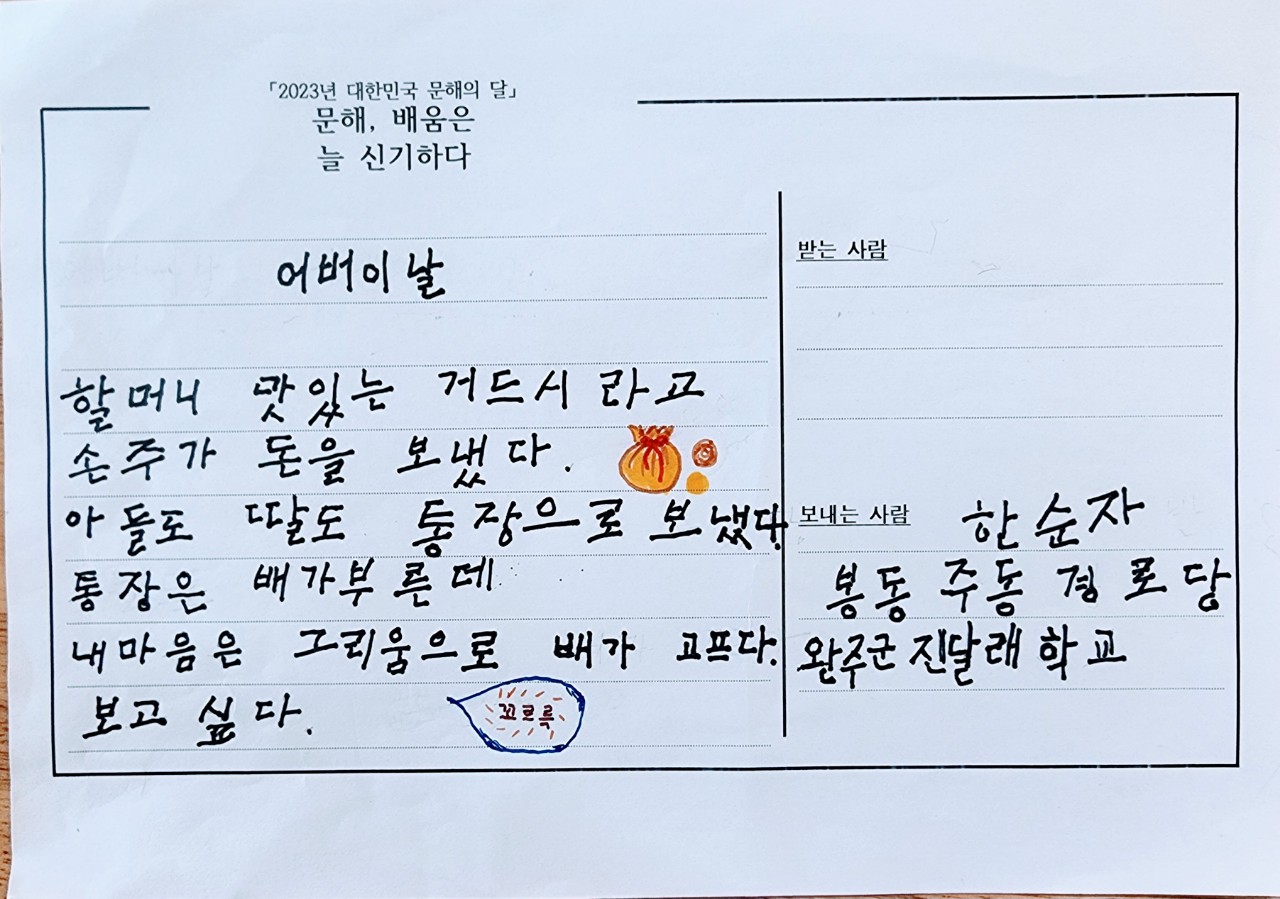 「2023년 대한민국 문해의 달」
문해, 배움은
늘 신기하다
어버이날
할머니 맛있는 거드시라고
손주가 돈을 보냈다.
아들도 딸도 통장으로 보냈다.
통장은 배가부른데
내마음은 그리움으로 배가 고프다.
보고 싶다.
꼬르륵
받는 사람
보내는 사람 한순자
봉동 주동 경로당
완주군 진달래학교